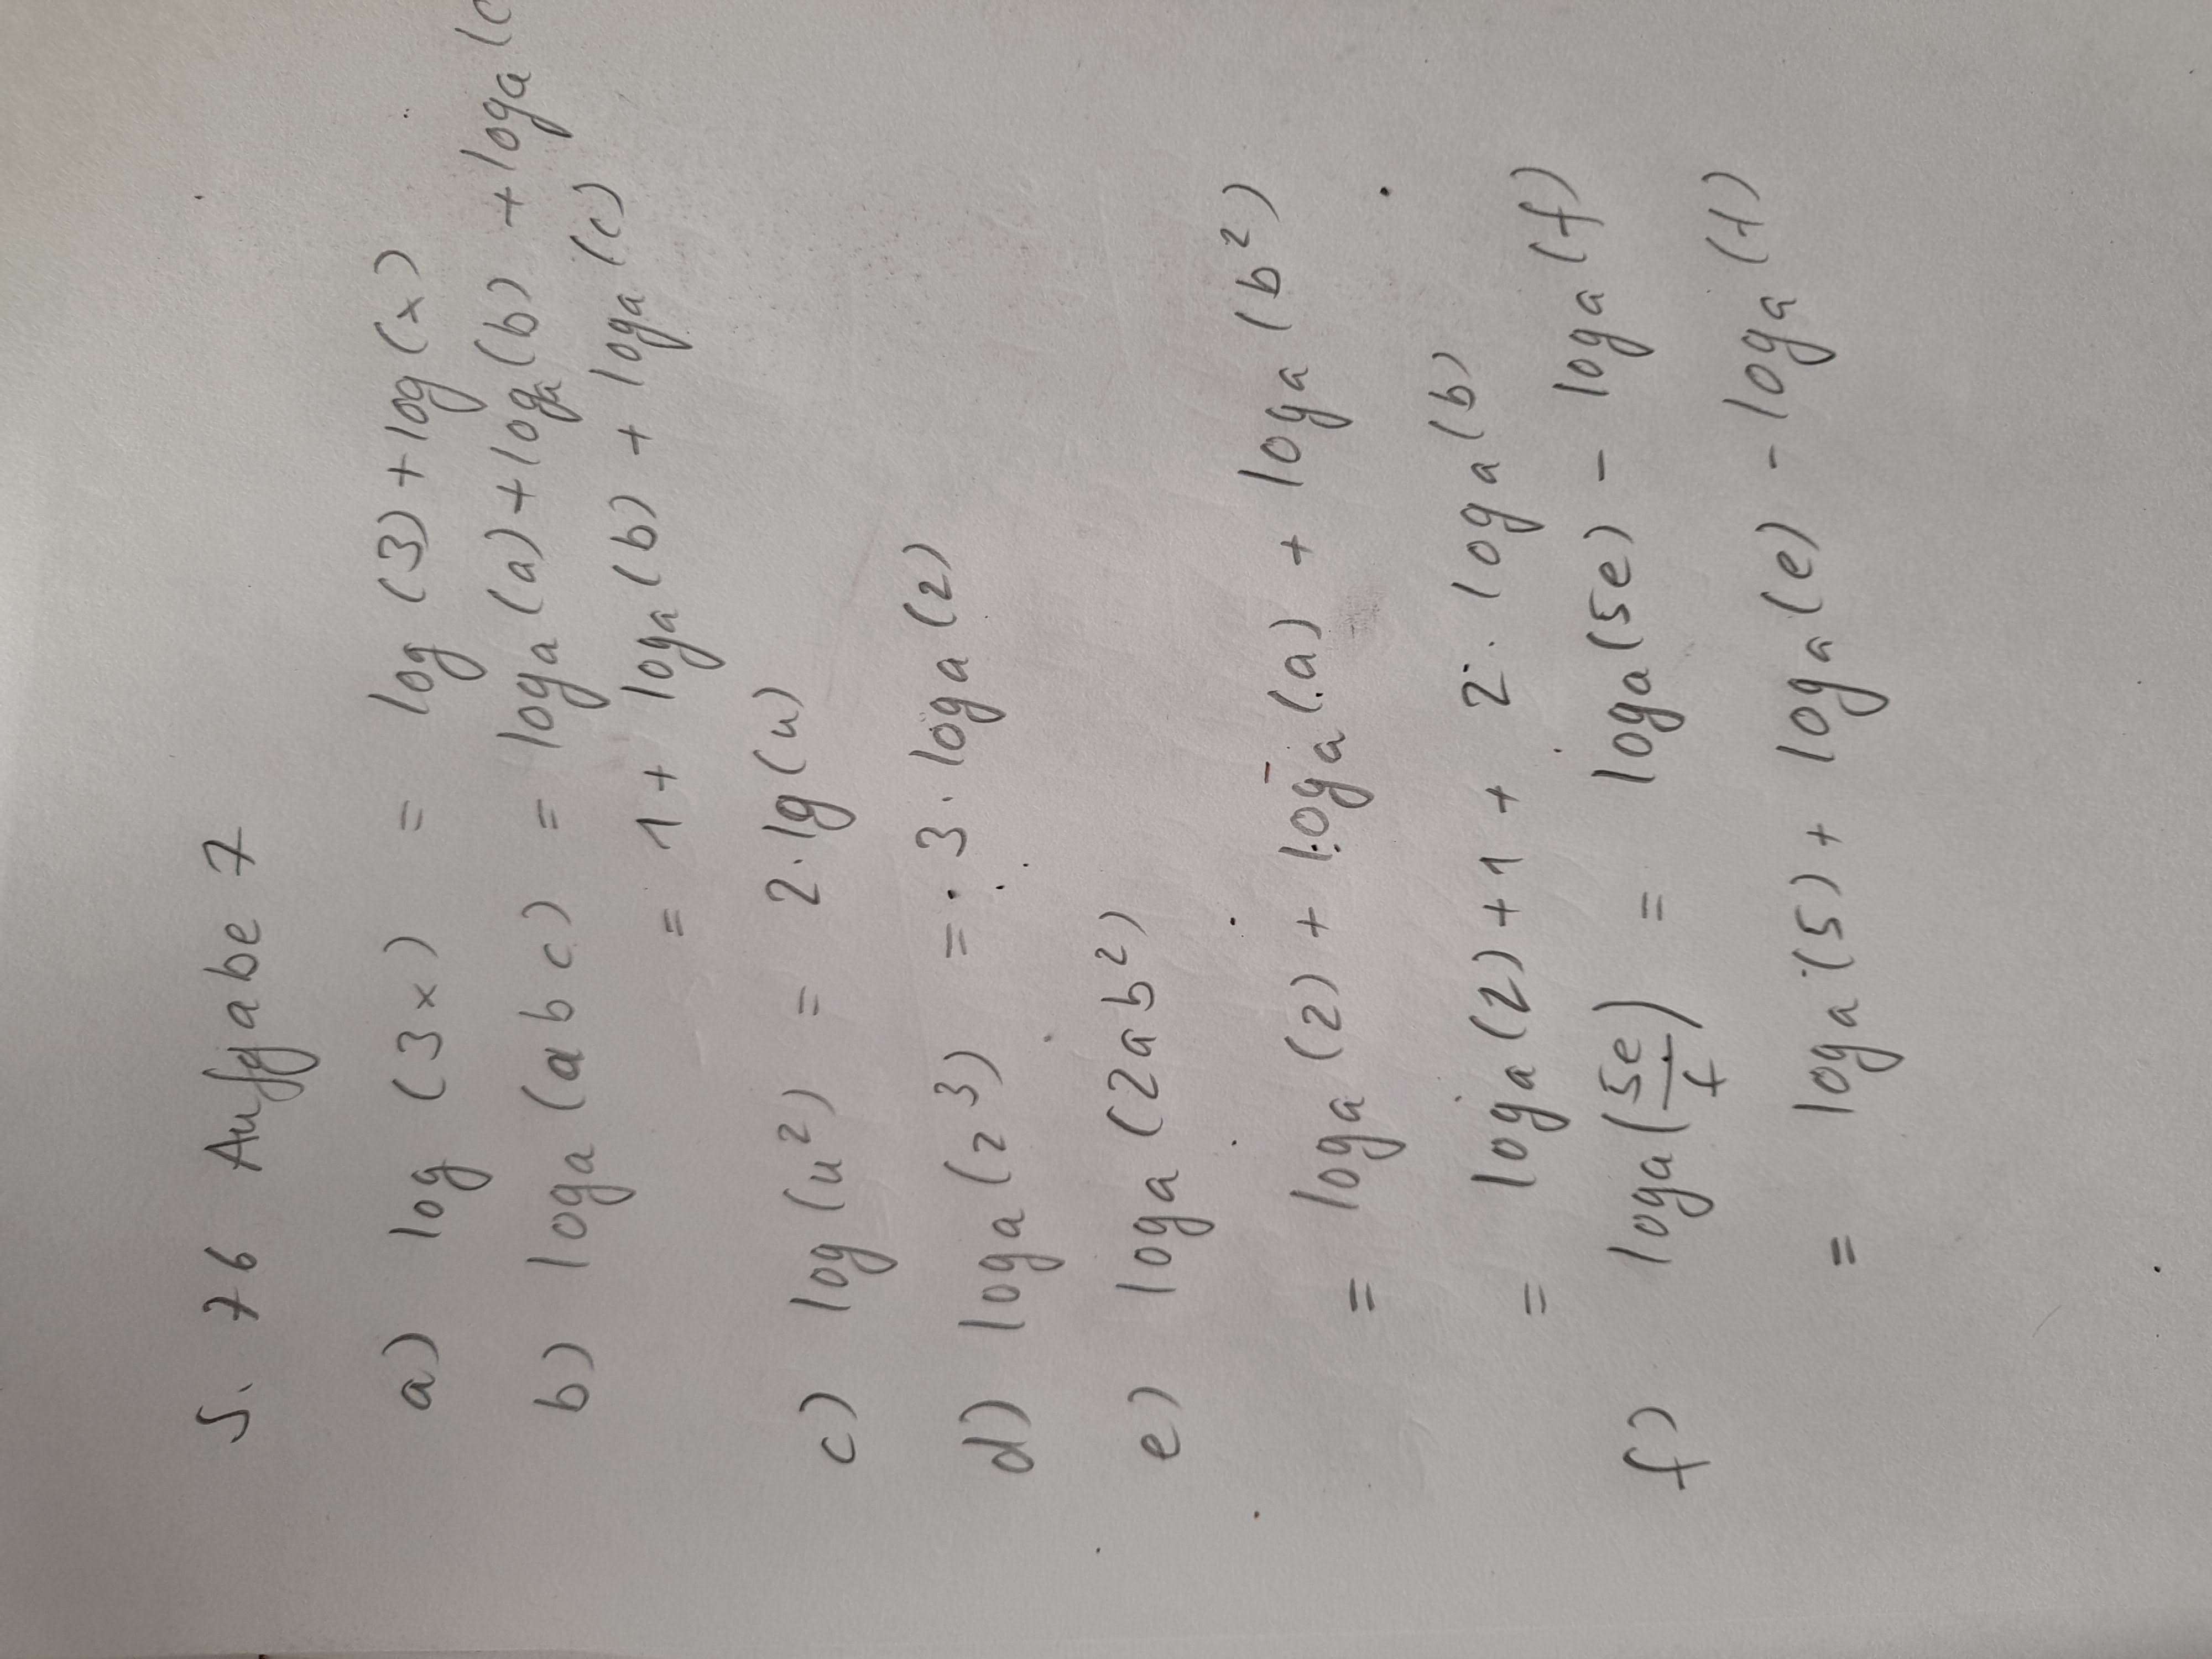 S. 76 Aufgabe 7
a) log (3x) = log (3) + log (x)
b) loga (abc) = loga (a) + loga (b) + loga (c
= 1 + loga (b) + loga (c)
c) log (u²) = 2 · lg (u)
d) loga (z³) = 3 · loga (z)
e) loga (2ab²)
= loga (2) + loga (a) + loga (b²)
= loga (2) + 1 + 2 · loga (b)
f) loga (5e/f) = loga (5e) - loga (f)
= loga (5) + loga (e) - loga (f)